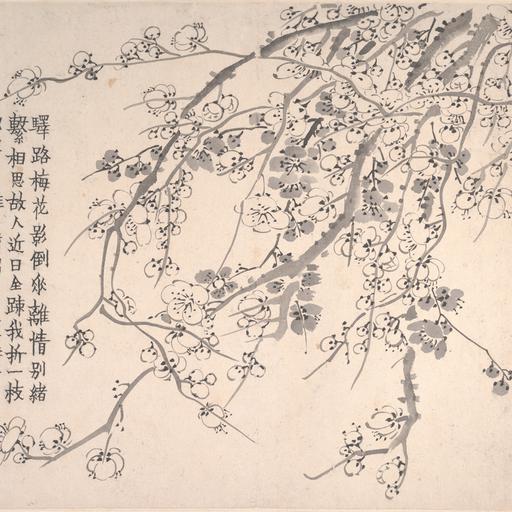 驛路梅花影倒垂離情別緒
繫相思故人近日全疎我折一枝